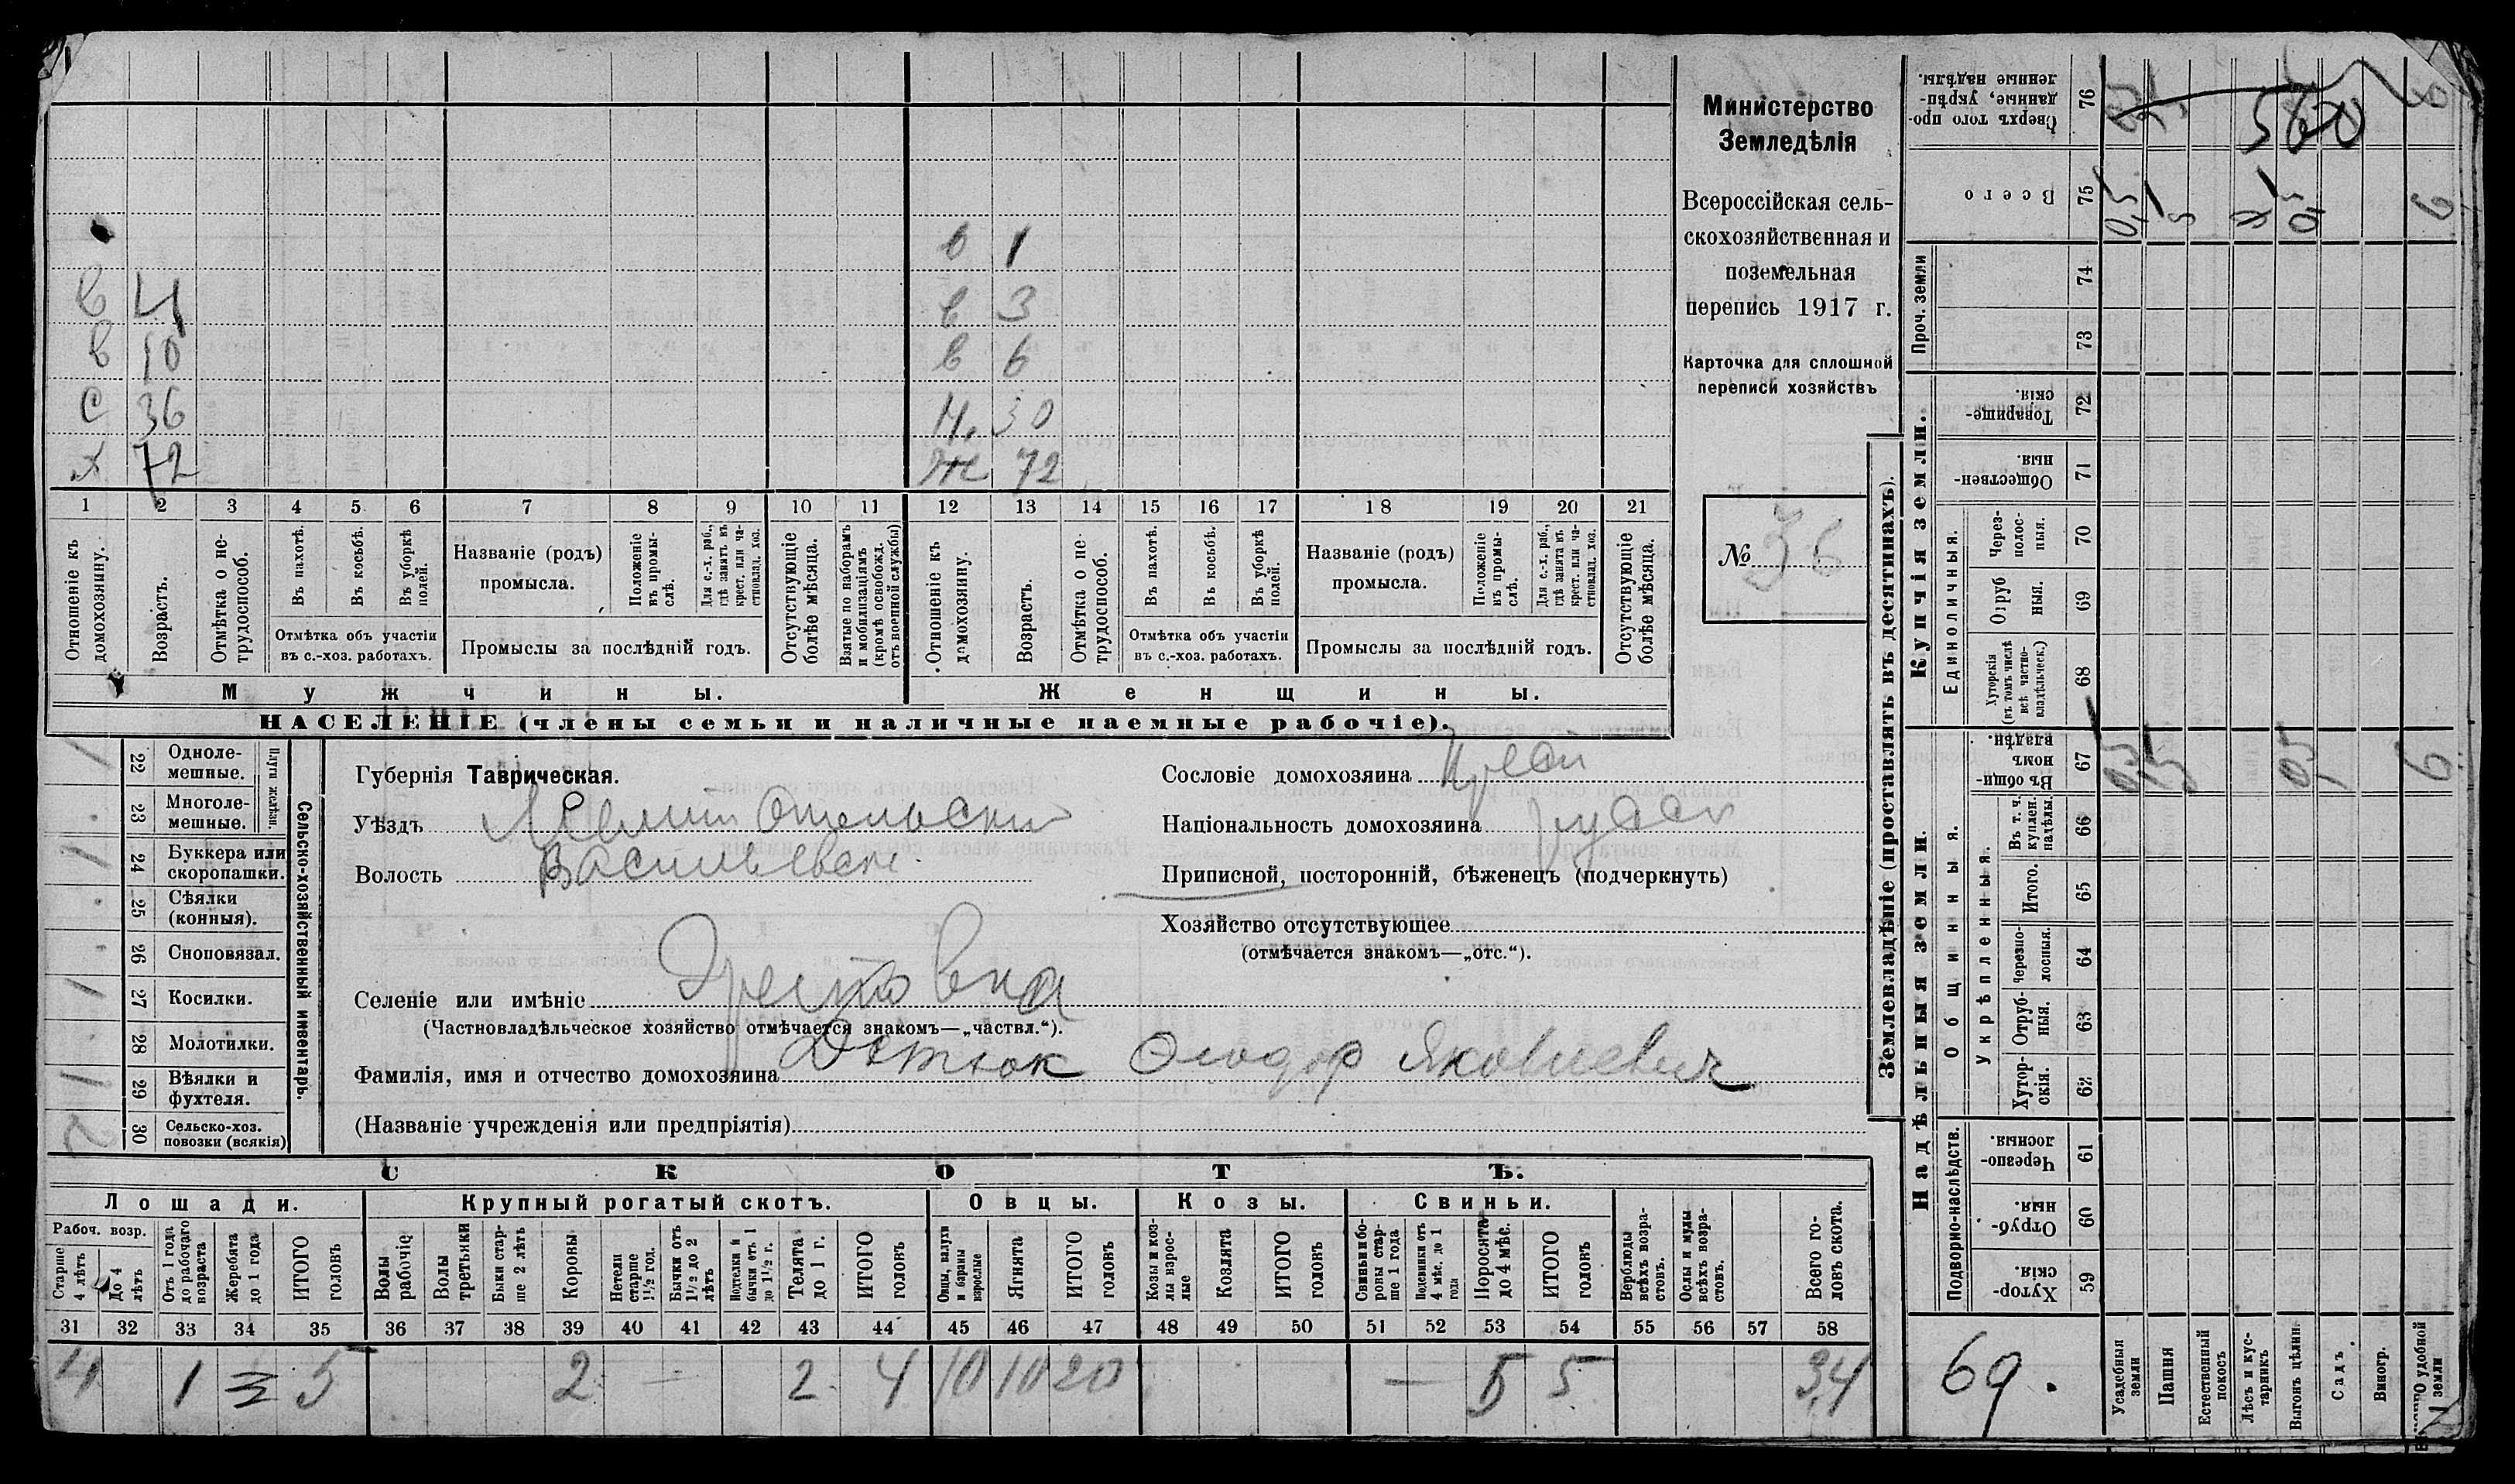 в 1
в 4 в 3
в 10 в 6
с 36 Н. 30
х 72 ж 72
1 2 3 4 5 6 7 8 9 10 11 12 13 14 15 16 17 18 19 20 21
Отношеніе къ домохозяину.
Возрастъ.
Отмѣтка о не-
трудоспособ.
Въ пахотѣ.
Въ косьбѣ.
Въ уборкѣ
полей.
Отмѣтка объ участіи
въ с.-хоз. работахъ.
Названіе (родъ)
промысла.
Положеніе
въ промы-
слѣ.
Для с.-х. раб.,
гдѣ занятъ въ
крест. или ча-
стновлад. хоз.
Промыслы за послѣдній годъ.
Отсутствующіе
болѣе мѣсяца.
Взятые по наборамъ
и мобилизаціямъ
(кромѣ освобожд.
отъ военной службы)
Отношеніе къ
домохозяину.
Возрастъ.
Отмѣтка о не-
трудоспособ.
Въ пахотѣ.
Въ косьбѣ.
Въ уборкѣ
полей.
Отмѣтка объ участіи
въ с.-хоз. работахъ.
Названіе (родъ)
промысла.
Положеніе
въ промы-
слѣ.
Для с.-х. раб.,
гдѣ занята въ
крест. или ча-
стновлад. хоз.
Промыслы за послѣдній годъ.
Отсутствующіе
болѣе мѣсяца.
Мужчины.
Женщины.
НАСЕЛЕНІЕ (члены семьи и наличные наемные рабочіе).
Министерство
Земледѣлія
Всероссійская сель-
скохозяйственная и
поземельная
перепись 1917 г.
Карточка для сплошной
переписи хозяйствъ
№ 36
22 Одноле-
мешные.
23 Многоле-
мешные.
Плуги желѣзн.
24 Буккера или
скоропашки.
25 Сѣялки
(конныя).
26 Сноповязал.
27 Косилки.
28 Молотилки.
29 Вѣялки и
фухтеля.
30 Сельско-хоз.
повозки (всякія)
Сельско-хозяйственный инвентарь.
Губернія Таврическая.
Уѣздъ Мелитопольскій
Волость Васильевск.
Селеніе или имѣніе
(Частновладѣльческое хозяйство отмѣчается знакомъ—„частвл.“).
Фамилія, имя и отчество домохозяина Детюк Яковлевич
(Названіе учрежденія или предпріятія)
Сословіе домохозяина
Національность домохозяина русск
Приписной, посторонній, бѣженецъ (подчеркнуть)
Хозяйство отсутствующее
(отмѣчается знакомъ—„отс.“).
СКОТЪ.
Лошади. Крупный рогатый скотъ. Овцы. Козы. Свиньи.
Рабоч. возр.
Старше
4 лѣтъ
До 4
лѣтъ
Отъ 1 года
до рабочаго
возраста
Жеребята
до 1 года
ИТОГО
головъ
Волы
рабочіе
Волы
третьяки
Быки стар-
ше 2 лѣтъ
Коровы
Нетели
старше
1½ год.
Бычки отъ
1½ до 2
лѣтъ
Подтелки и
бычки отъ 1
до 1½ г.
Телята
до 1 г.
ИТОГО
головъ
Овцы, валухи
и бараны
взрослые
Ягнята
ИТОГО
головъ
Козы и коз-
лы взрос-
лые
Козлята
ИТОГО
головъ
Свиньи и бо-
ровы стар-
ше 1 года
Подсвинки отъ
4 мѣс. до 1
года
Поросята
до 4 мѣс.
ИТОГО
головъ
Верблюды
всѣхъ возра-
стовъ.
Ослы и мулы
всѣхъ возра-
стовъ.
Всего го-
ловъ скота.
31 32 33 34 35 36 37 38 39 40 41 42 43 44 45 46 47 48 49 50 51 52 53 54 55 56 57 58
4 1 5 2 — 2 4 10 10 20 — 5 5 34
Землевладѣніе (проставлять въ десятинахъ).
Сверхъ того про-
данные, укрѣп-
ленные надѣлы. 76
Всего 75
Проч. земли 74
73
Купчія земли.
Товарище-
скія. 72
Обществен-
ныя. 71
Единоличныя.
Через-
полос-
ныя. 70
Отруб
ныя. 69
Хуторскія
(въ томъ числѣ
всѣ частно-
владѣльческ.) 68
Надѣльныя земли.
Общинныя.
Въ общи-
номъ
владѣн. 67
Укрѣпленныя.
Въ т. ч.
куплен.
надѣлы. 66
Итого. 65
Черезпо-
лосныя. 64
Отруб-
ныя. 63
Хутор-
скія. 62
Подворно-наслѣдств.
Черезпо-
лосныя. 61
Отруб-
ныя. 60
Хутор-
скія. 59
69.
Усадебныя
земли
Пашня
Естественный
покосъ
Лѣсъ и кус-
тарникъ
Выгонъ цѣлин.
Садъ.
Виногр.
удобной
земли